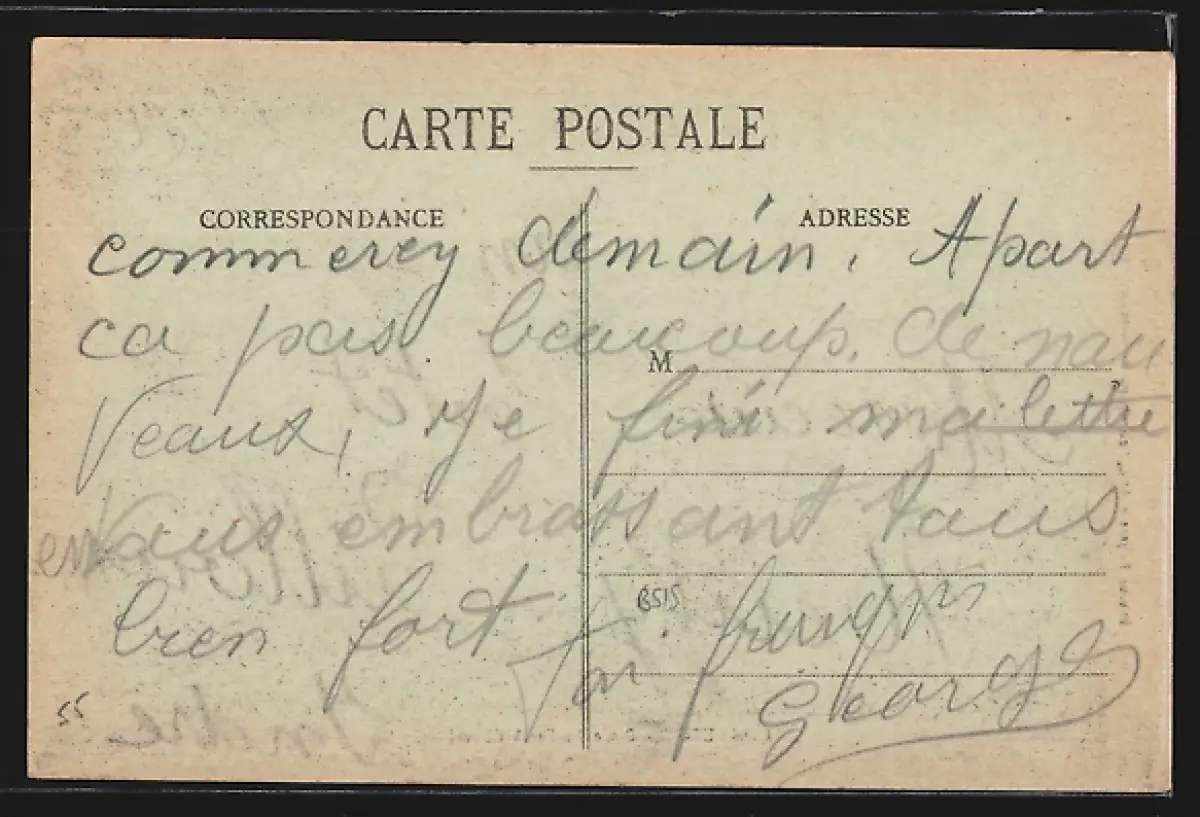 CARTE POSTALE
CORRESPONDANCE
ADRESSE
commercy demain. Apart
ca pas beaucoup. de nou
M
veaux, Je fini ma lettre
en vous embrassant tous
bien fort
B515
George
55